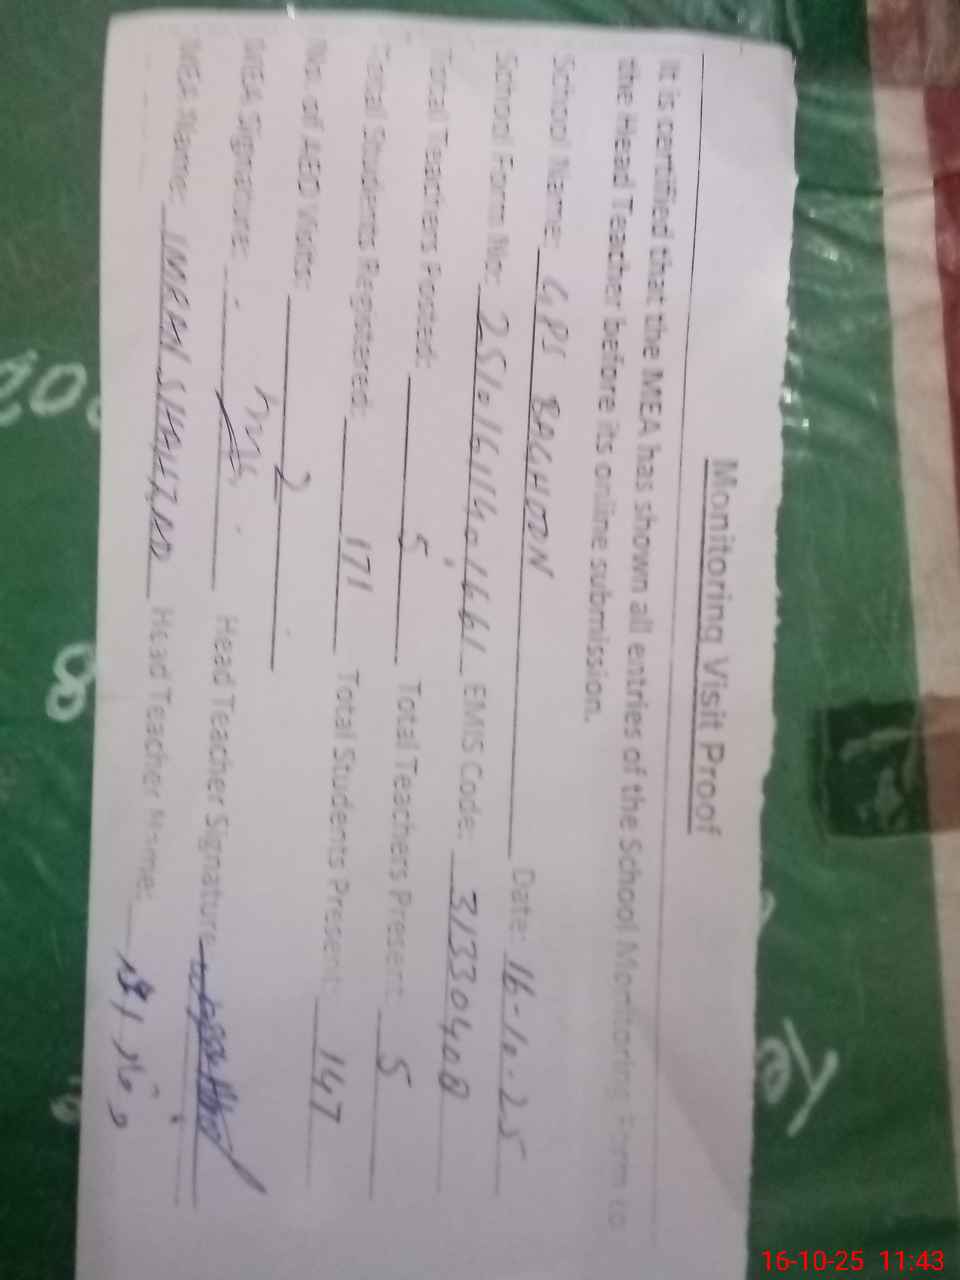 Monitoring Visit Proof
It is certified that the MEA has shown all entries of the School Monitoring Form to
the Head Teacher before its online submission.
School Name: GPS BAGHOON Date: 16-10-25
School Form No: 25101611401661 EMIS Code: 31330408
Total Teachers Posted: 5 Total Teachers Present: 5
Total Students Registered: 171 Total Students Present: 147
No. of AEO Visits: 2
MEA Signature: Head Teacher Signature
MEA Name: IMRAN SHAHZAD Head Teacher Name:
16-10-25 11:43